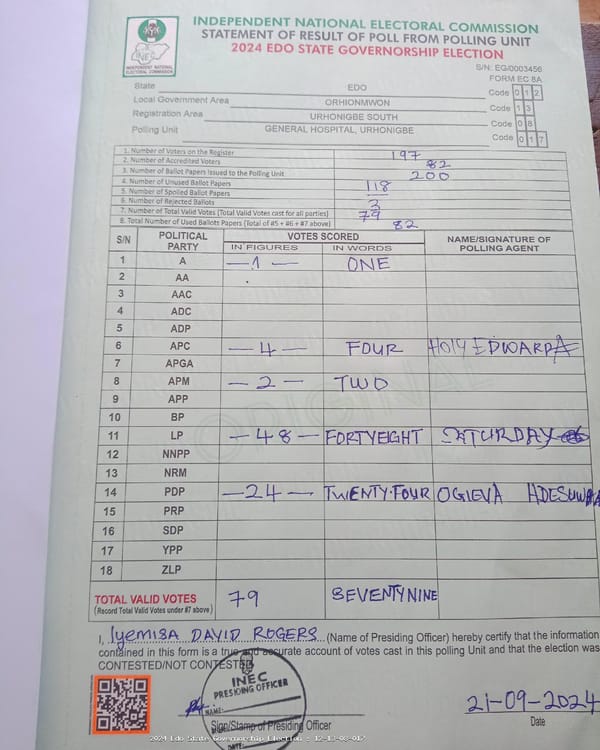 INDEPENDENT NATIONAL ELECTORAL COMMISSION
STATEMENT OF RESULT OF POLL FROM POLLING UNIT
2024 EDO STATE GOVERNORSHIP ELECTION
INEC
INDEPENDENT NATIONAL
ELECTORAL COMMISSION
S/N: EG/0003456
FORM EC 8A
State EDO Code 0 1 2
Local Government Area ORHIONMWON Code 1 3
Registration Area URHONIGBE SOUTH Code 0 8
Polling Unit GENERAL HOSPITAL, URHONIGBE Code 0 1 7
1. Number of Voters on the Register 197
2. Number of Accredited Voters 82
3. Number of Ballot Papers Issued to the Polling Unit 200
4. Number of Unused Ballot Papers 118
5. Number of Spoiled Ballot Papers —
6. Number of Rejected Ballots 3
7. Number of Total Valid Votes (Total Valid Votes cast for all parties) 79
8. Total Number of Used Ballots Papers (Total of #5 + #6 + #7 above) 82
S/N POLITICAL PARTY VOTES SCORED NAME/SIGNATURE OF POLLING AGENT
IN FIGURES IN WORDS
1 A —1— ONE
2 AA
3 AAC
4 ADC
5 ADP
6 APC —4— FOUR HOLY EDWARD
7 APGA
8 APM —2— TWO
9 APP
10 BP
11 LP —48— FORTYEIGHT SATURDAY
12 NNPP
13 NRM
14 PDP —24— TWENTY-FOUR OGIEVA
15 PRP
16 SDP
17 YPP
18 ZLP
ORIGINAL
TOTAL VALID VOTES 79 SEVENTYNINE
(Record Total Valid Votes under #7 above)
I, Iyemisa DAVID ROGERS (Name of Presiding Officer) hereby certify that the information
contained in this form is a true and accurate account of votes cast in this polling Unit and that the election was
CONTESTED/NOT CONTESTED
INEC
PRESIDING OFFICER
NAME:
DATE:
21-09-2024
Sign/Stamp of Presiding Officer Date
2024 Edo State Governorship Election - 12-13-08-017